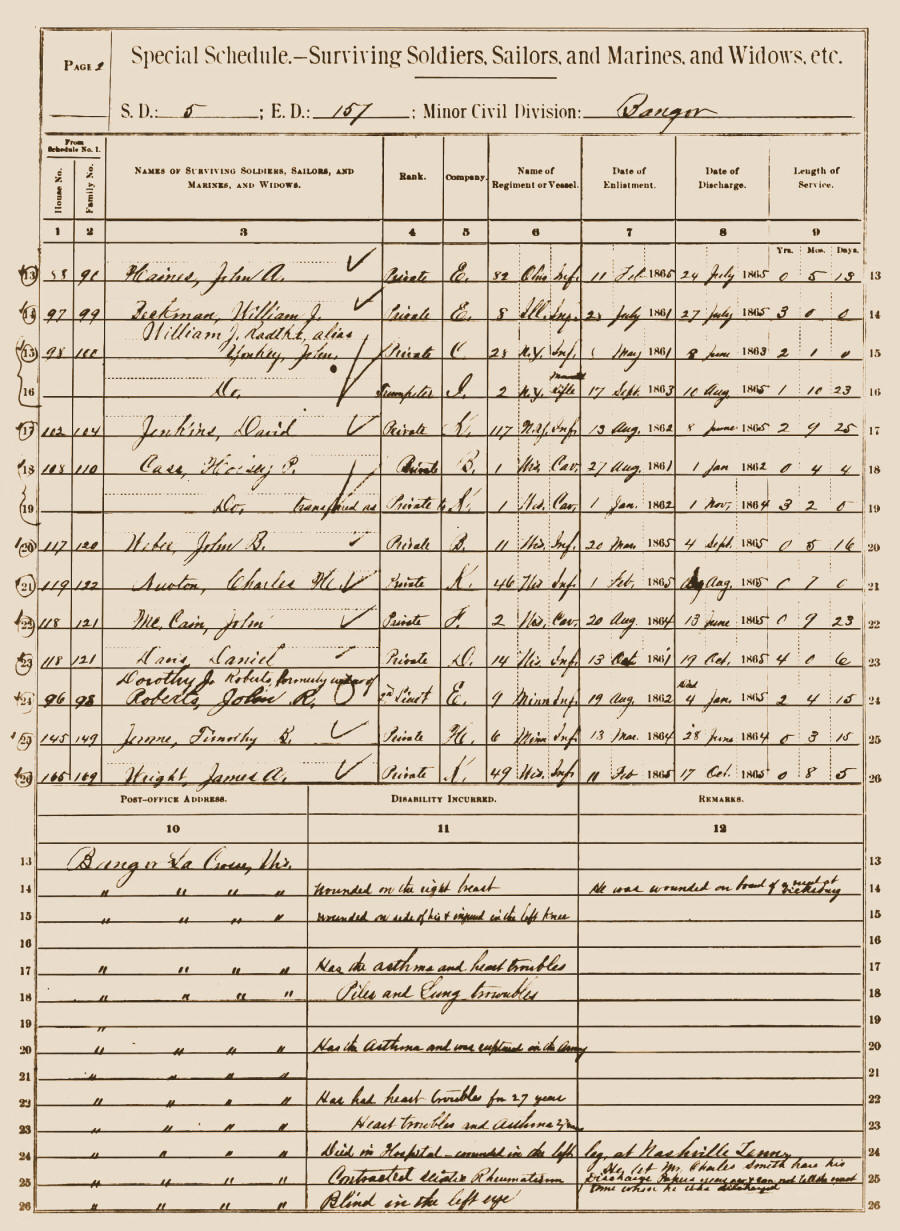 Page 2
Special Schedule.—Surviving Soldiers, Sailors, and Marines, and Widows, etc.
S. D.: 5 ; E. D.: 157 ; Minor Civil Division: Bangor
From Schedule No. 1.
House No. Family No. Names of Surviving Soldiers, Sailors, and Marines, and Widows. Rank. Company. Name of Regiment or Vessel. Date of Enlistment. Date of Discharge. Length of Service.
1 2 3 4 5 6 7 8 9
Yrs. Mos. Days.
13 Haines, John A. Private E. 82 Ohio Inf. 11 Feb. 1865 24 July 1865 0 5 13 13
14 97 99 Beekman, William J. Private E. 8 Ill. Inf. July 1861 27 July 1865 3 0 0 14
William J. Radtke, alias
15 98 100 Yonkey, John, Private C. 28 N.Y. Inf. May 1861 8 June 1863 2 1 0 15
16 Do. Trumpeter I. 2 N.Y. Mounted Rifle 17 Sept. 1863 10 Aug. 1865 1 10 23 16
17 102 104 Jenkins, David Private K. 117 N.Y. Inf. 13 Aug. 1862 8 June 1865 2 9 25 17
18 108 110 Cass, P. Private B. 1 Wis. Cav. 27 Aug. 1861 1 Jan 1862 0 4 4 18
19 Do. transferred as Private to K. 1 Wis. Cav. 1 Jan. 1862 1 Nov. 1864 3 2 0 19
20 117 120 Weber, John B. Private B. 11 Wis. Inf. 20 Mar. 1865 4 Sept. 1865 0 5 16 20
21 119 122 Newton, Charles Private K. 46 Wis Inf. 1 Feb. 1865 Aug. 1865 0 7 0 21
22 118 121 Mc. Cain, John Private F. 2 Wis. Cav. 20 Aug. 1864 13 June 1865 0 9 23 22
23 118 121 Davis, Daniel Private D. 14 Wis. Inf. 13 Oct 1861 19 Oct. 1865 4 0 6 23
Dorothy J. Roberts, formerly widow of
24 96 98 Roberts, John R. 2nd Lieut E. 9 Minn Inf. 19 Aug. 1862 Died 4 Jan. 1865 2 4 15 24
25 145 149 Jerome, Timothy Private H. 6 Minn Inf. 13 Mar. 1864 28 June 1864 0 3 15 25
26 165 169 Wright, James A. Private K. 49 Wis. Inf. 11 Feb 1865 17 Oct. 1865 0 8 5 26
Post-office Address. Disability Incurred. Remarks.
10 11 12
13 Bangor La Crosse, Wis. 13
14 " " " " Wounded on the right breast He was wounded on board of a boat at Vicksburg 14
15 " " " " Wounded on side of & injured in the left knee 15
16 16
17 " " " " Has the asthma and heart troubles 17
18 " " " " Piles and Lung troubles 18
19 " 19
20 " " " " Has the Asthma and was ruptured in the Army 20
21 " " " " 21
22 " " " " Has had heart troubles for 27 years 22
23 " " " " Heart troubles and Asthma 23
24 " " " " Died in Hospital — wounded in the left leg, at Nashville Tenn. 24
25 " " " " Contracted Rheumatism He let Mr. Charles Smith have his Discharge Papers years ago & can not tell the exact time when he was discharged 25
26 " " " " Blind in the left eye 26